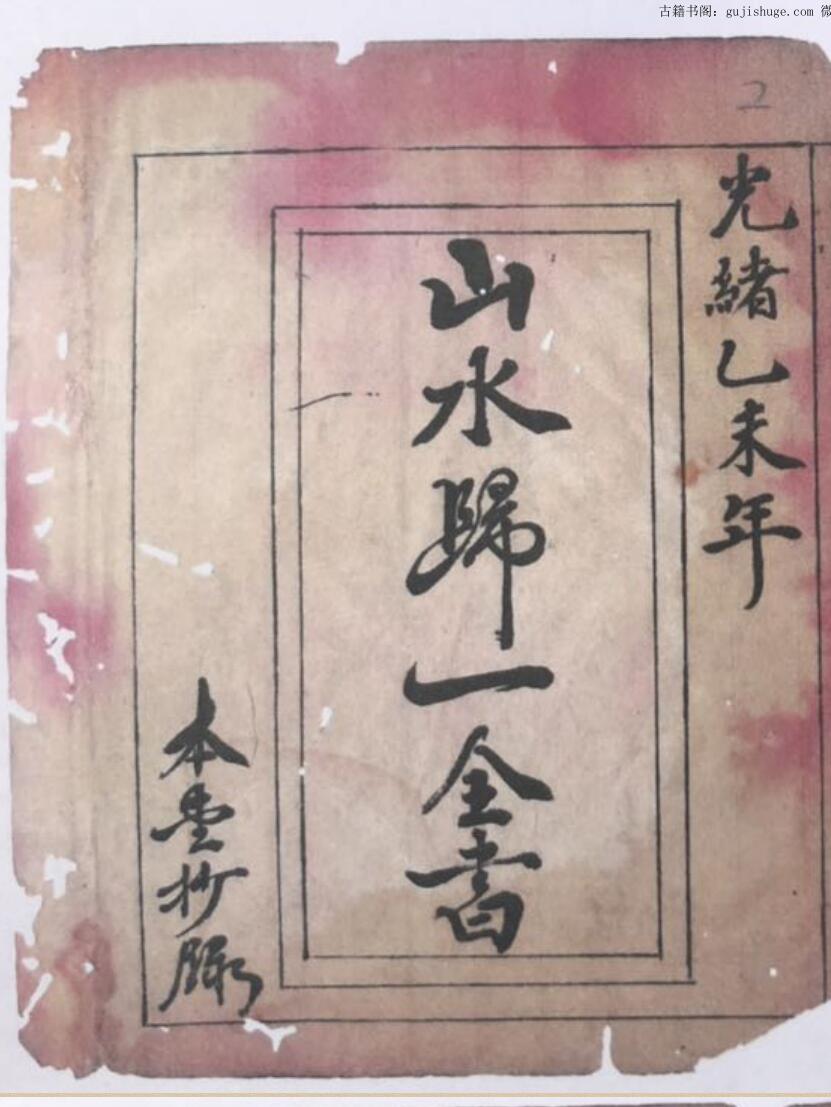 古籍书阁：gujishuge.com 微
2
光緒乙未年
山水歸一全書
本堂抄錄